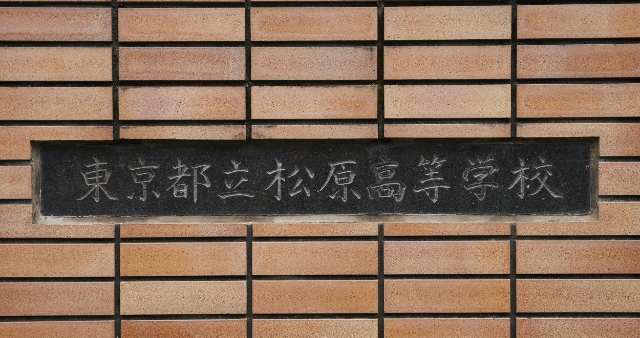 東京都立松原高等学校